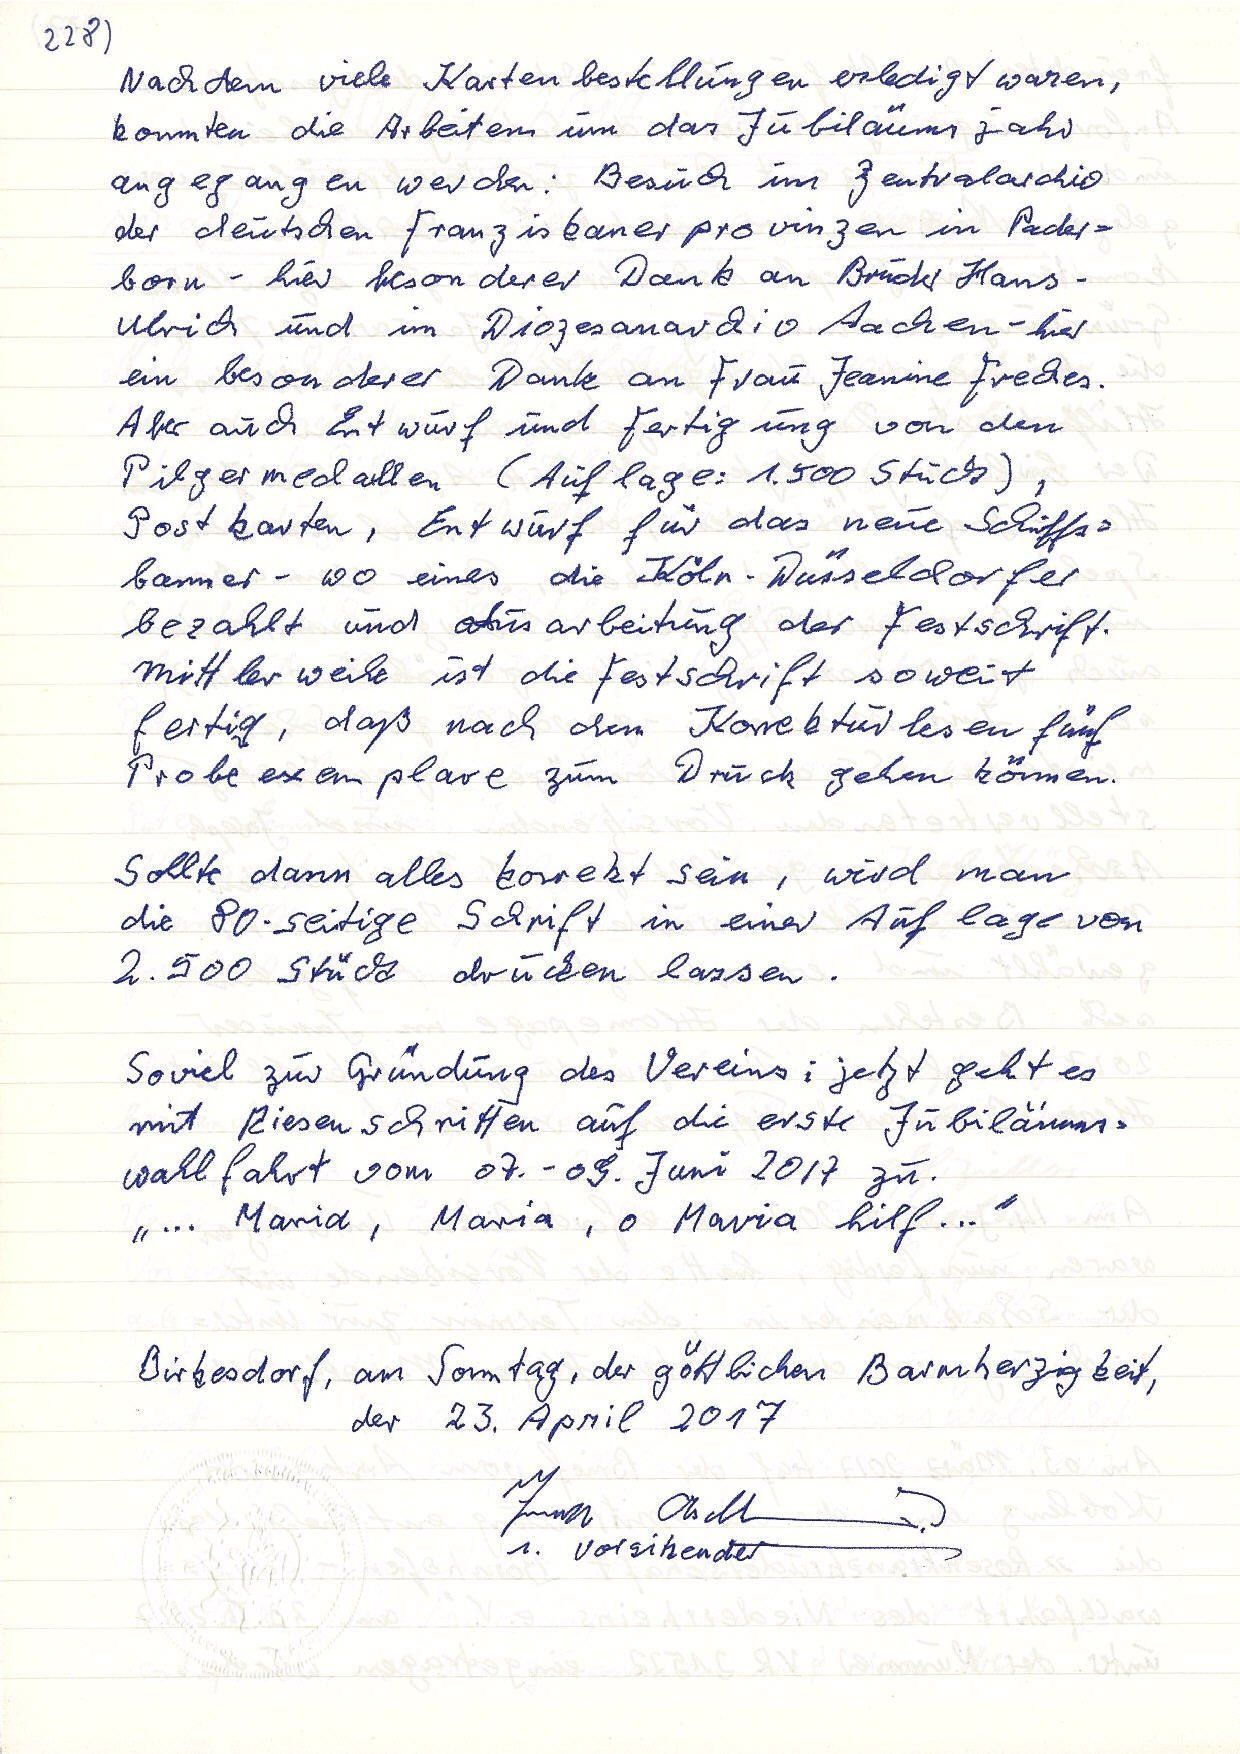 228)
Nachdem viele Kartenbestellungen erledigt waren,
konnten die Arbeiten um das Jubiläumsjahr
angegangen werden: Besuch im Zentralarchiv
der deutschen Franziskanerprovinzen in Pader=
born - hier besonderer Dank an Bruder Hans-
Ulrich und im Diözesanarchiv Aachen - hier
ein besonderer Dank an Frau Jeanine Freches.
Aber auch Entwurf und Fertigung von den
Pilgermedaillen (Auflage: 1.500 Stück),
Postkarten, Entwurf für das neue Schiffs=
banner - wo eines die Köln-Düsseldorfer
bezahlt und Ausarbeitung der Festschrift.
Mittlerweile ist die Festschrift soweit
fertig, daß nach dem Korrekturlesen fünf
Probeexemplare zum Druck gehen können.
Sollte dann alles korrekt sein, wird man
die 80-seitige Schrift in einer Auflage von
2.500 Stück drucken lassen.
Soviel zur Gründung des Vereins; jetzt geht es
mit Riesenschritten auf die erste Jubiläums=
wallfahrt vom 07.-09. Juni 2017 zu.
„... Maria, Maria, o Maria hilf..."
Birkesdorf, am Sonntag, der göttlichen Barmherzigkeit,
der 23. April 2017
1. Vorsitzender